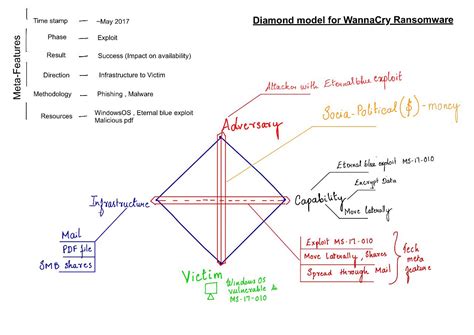 Diamond model for WannaCry Ransomware
Meta-Features
Time stamp ~May 2017
Phase Exploit
Result Success (Impact on availability)
Direction Infrastructure to Victim
Methodology Phishing , Malware
Resources WindowsOS , Eternal blue exploit
Malicious pdf
Attacker with Eternalblue exploit
Adversary
Socia-Political ($) - money
Eternal blue exploit MS-17-010
Encrypt Data
Infrastructure
Capability
Move laterally
Mail
PDF file
SMB shares
Exploit MS-17-010
Move Laterally, Shares
Spread through Mail
Tech
meta
feature
Victim
Windows OS
vulnerable to
MS-17-010